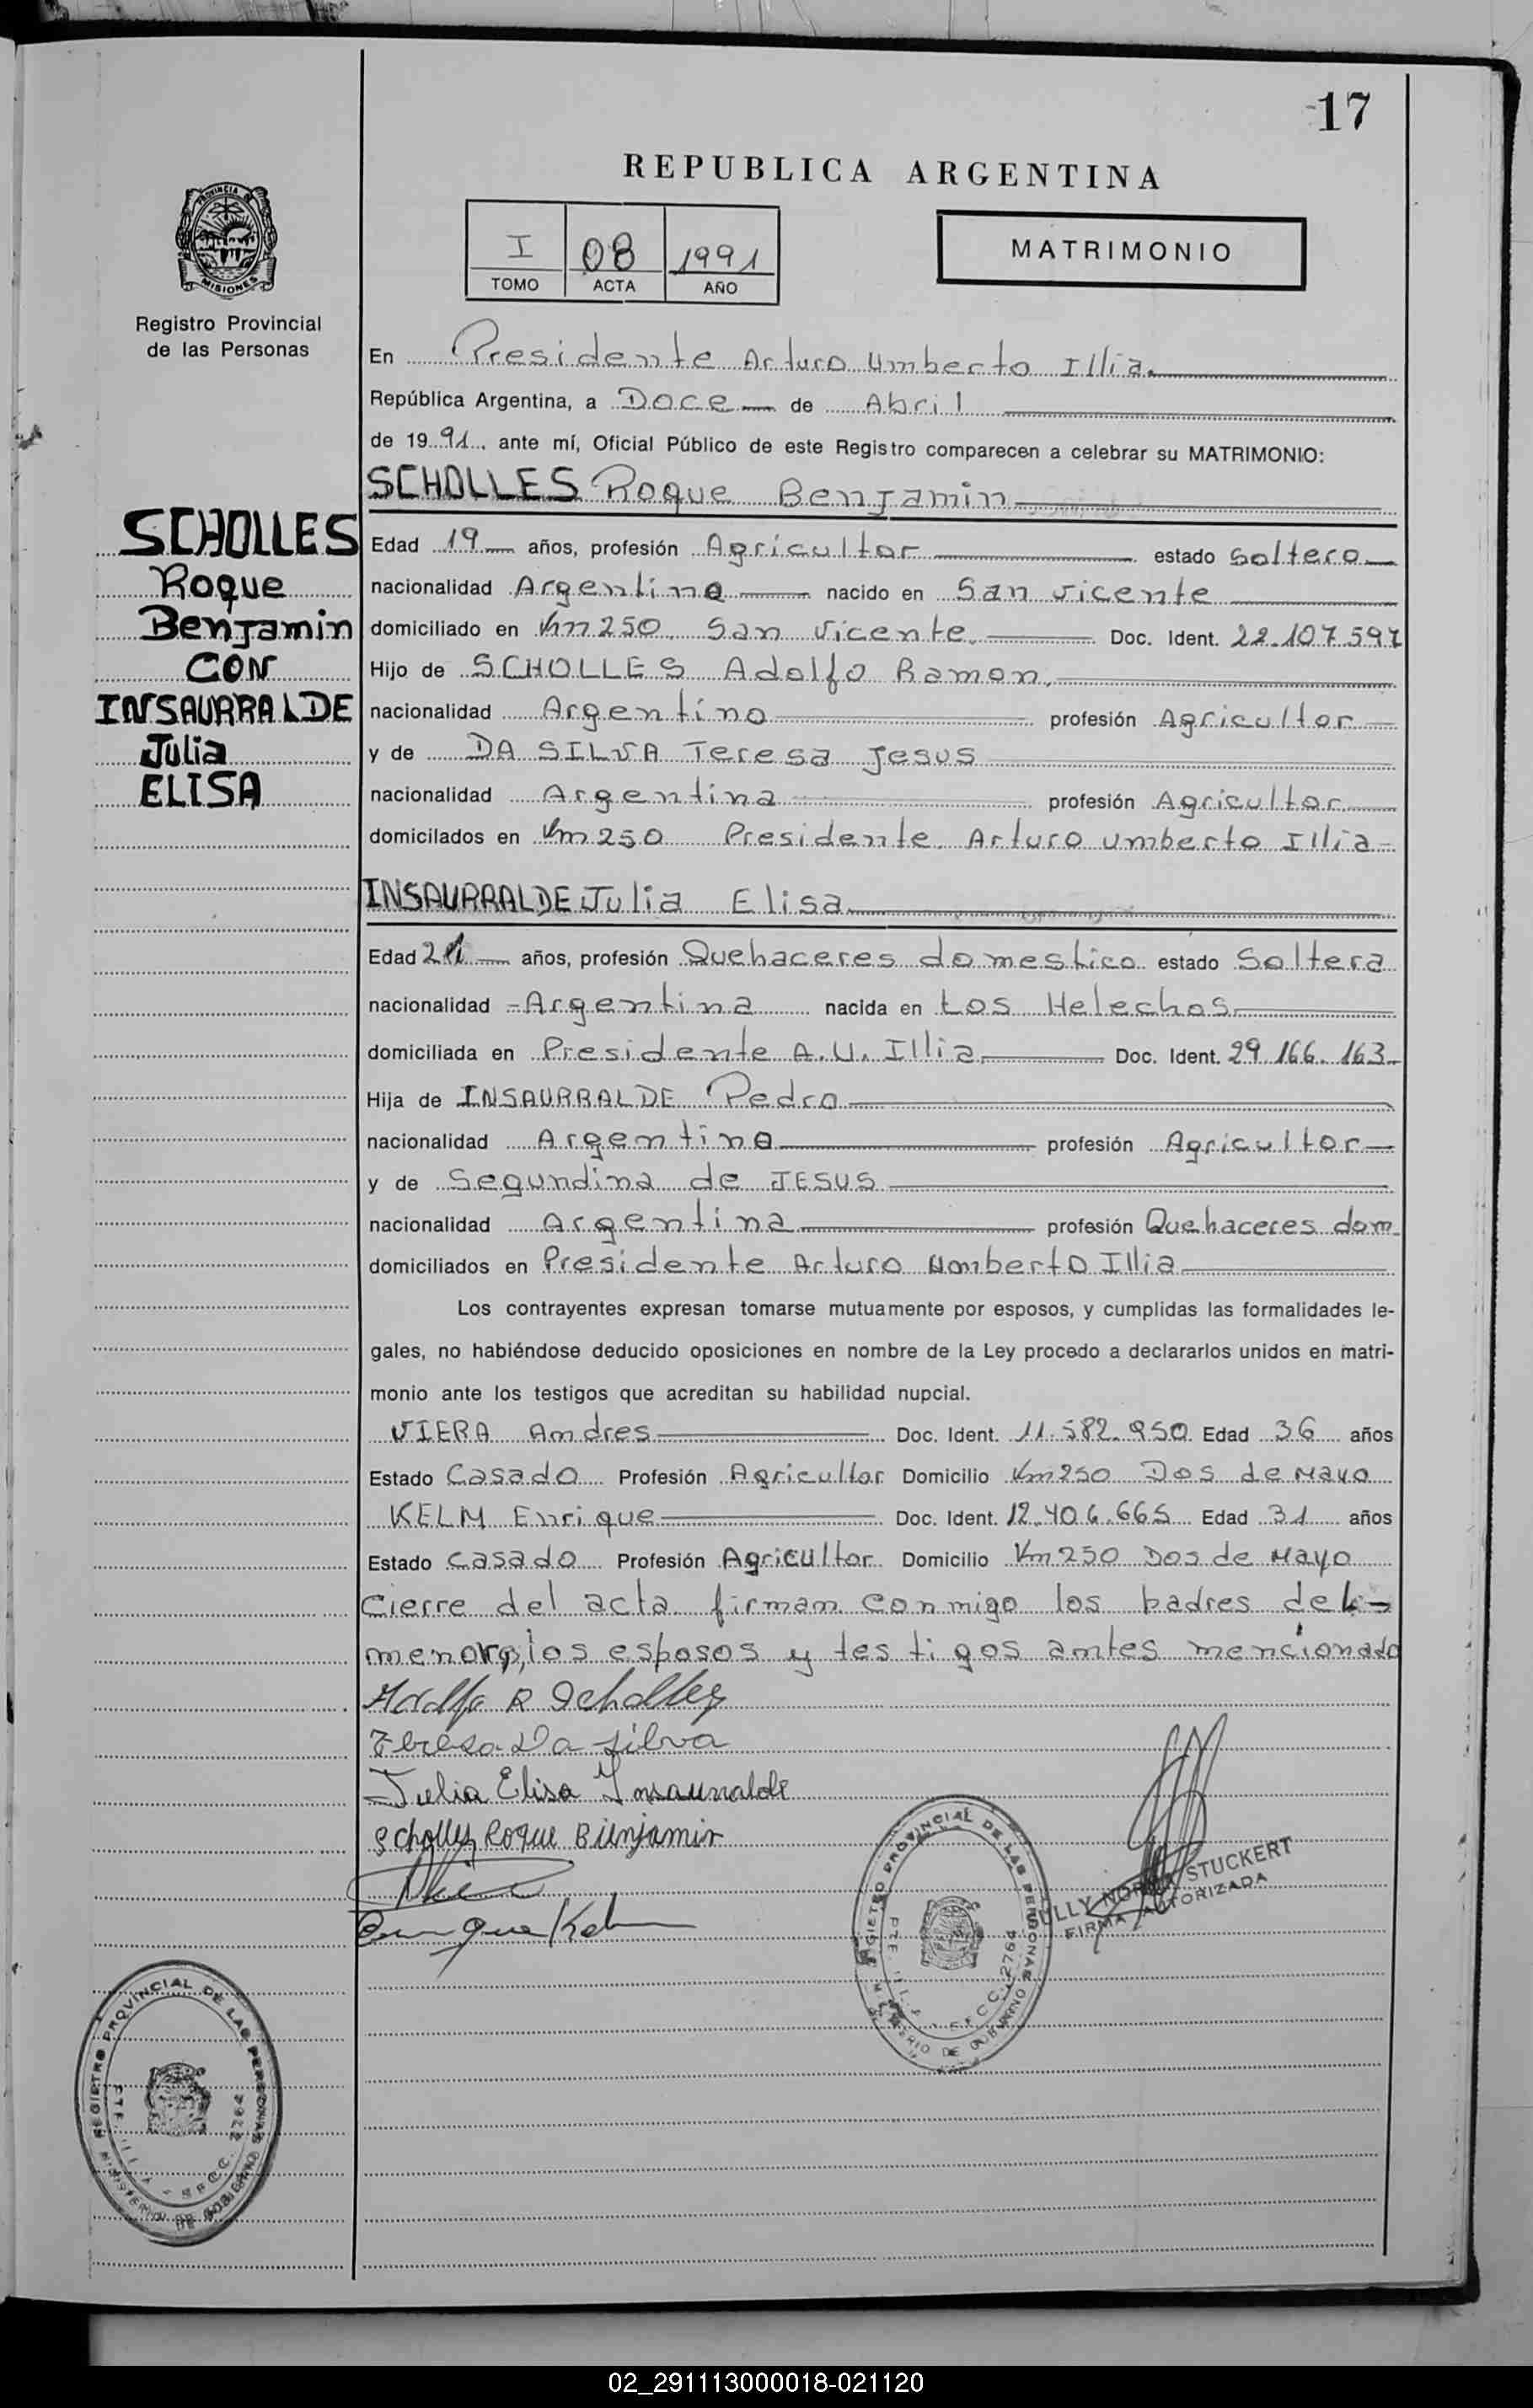 17
REPUBLICA ARGENTINA
I 08 1991
TOMO ACTA AÑO
MATRIMONIO
PROVINCIA
MISIONES
Registro Provincial
de las Personas
En Presidente Arturo Umberto Illia.
República Argentina, a Doce de Abril
de 1991. ante mí, Oficial Público de este Registro comparecen a celebrar su MATRIMONIO:
SCHOLLES Roque Benjamin
SCHOLLES
Roque
Benjamin
CON
INSAURRALDE
Julia
ELISA
Edad 19 años, profesión Agricultor estado Soltero
nacionalidad Argentino nacido en San Vicente
domiciliado en Km 250. San Vicente. Doc. Ident. 22.107.597
Hijo de SCHOLLES Adolfo Ramon.
nacionalidad Argentino profesión Agricultor
y de DA SILVA Teresa Jesus
nacionalidad Argentina profesión Agricultor
domicilados en Km 250 Presidente Arturo Umberto Illia
INSAURRALDE Julia Elisa
Edad 21 años, profesión Quehaceres domestico estado Soltera
nacionalidad Argentina nacida en Los Helechos
domiciliada en Presidente A.U. Illia Doc. Ident. 29.166.163
Hija de INSAURRALDE Pedro
nacionalidad Argentino profesión Agricultor
y de Segundina de JESUS
nacionalidad Argentina profesión Quehaceres dom.
domiciliados en Presidente Arturo Umberto Illia
Los contrayentes expresan tomarse mutuamente por esposos, y cumplidas las formalidades le-
gales, no habiéndose deducido oposiciones en nombre de la Ley procedo a declararlos unidos en matri-
monio ante los testigos que acreditan su habilidad nupcial.
VIERA Andres Doc. Ident. 11.582.950 Edad 36 años
Estado Casado Profesión Agricultor Domicilio Km 250 Dos de Mayo
KELM Enrique Doc. Ident. 12.406.665 Edad 31 años
Estado casado Profesión Agricultor Domicilio Km 250 Dos de Mayo
Cierre del acta firman conmigo los padres del
menor, los esposos y testigos antes mencionado
Adolfo R Scholles
Teresa Da Silva
Julia Elisa Insaurralde
Scholles Roque Bienjamin
Enrique Kelm
REGISTRO PROVINCIAL DE LAS PERSONAS
PTE. ILLIA - SECC. 2764
MINISTERIO DE GOBIERNO
LLY NORMA STUCKERT
FIRMA AUTORIZADA
REGISTRO PROVINCIAL DE LAS PERSONAS
PTE. ILLIA - SECC. 2764
MINISTERIO DE GOBIERNO
02_291113000018-021120